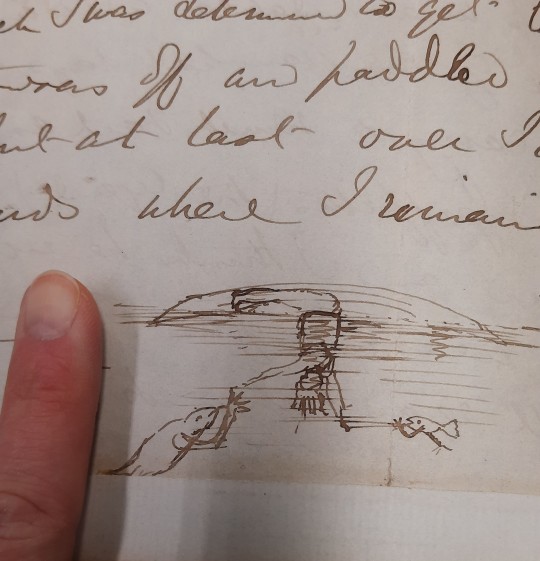 I was determined to get
off an paddled
but at last over I
where I remain